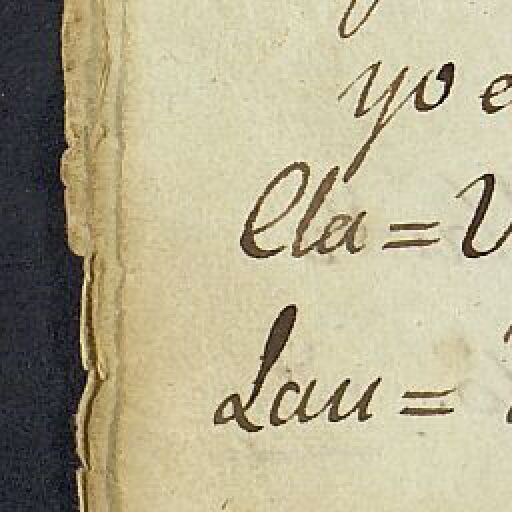 yo e
Cla = V
Lau =